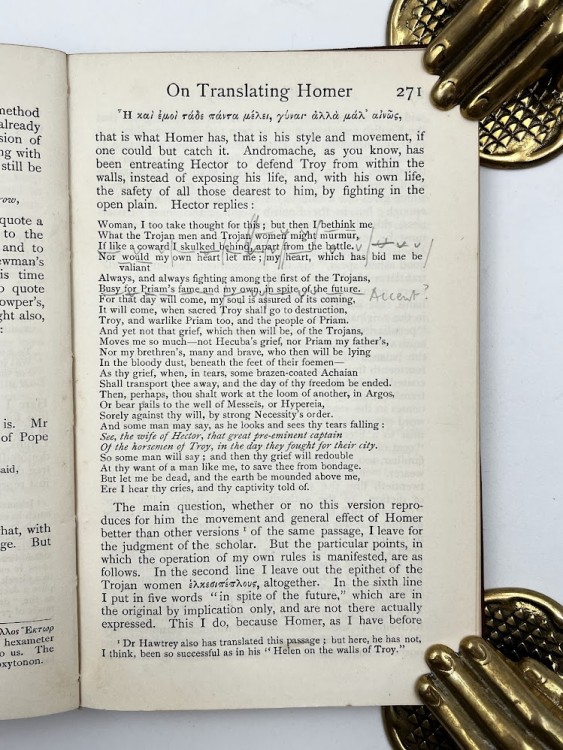 method
already
sion of
ng with
still be
row,
quote a
to the
and to
wman's
is time
o quote
owper's,
ght also,
:
is. Mr
of Pope
aid,
hat, with
ge. But
λλος Ἕκτωρ
hexameter
o us. The
oxytonon.
On Translating Homer 271
Ἦ καὶ ἐμοὶ τάδε πάντα μέλει, γύναι· ἀλλὰ μάλ' αἰνῶς,
that is what Homer has, that is his style and movement, if
one could but catch it. Andromache, as you know, has
been entreating Hector to defend Troy from within the
walls, instead of exposing his life, and, with his own life,
the safety of all those dearest to him, by fighting in the
open plain. Hector replies :
Woman, I too take thought for this ; but then I bethink me
What the Trojan men and Trojan women might murmur,
If like a coward I skulked behind, apart from the battle.
Nor would my own heart let me ; my heart, which has bid me be
valiant
Always, and always fighting among the first of the Trojans,
Busy for Priam's fame and my own, in spite of the future.
Accent?
For that day will come, my soul is assured of its coming,
It will come, when sacred Troy shall go to destruction,
Troy, and warlike Priam too, and the people of Priam.
And yet not that grief, which then will be, of the Trojans,
Moves me so much—not Hecuba's grief, nor Priam my father's,
Nor my brethren's, many and brave, who then will be lying
In the bloody dust, beneath the feet of their foemen—
As thy grief, when, in tears, some brazen-coated Achaian
Shall transport thee away, and the day of thy freedom be ended.
Then, perhaps, thou shalt work at the loom of another, in Argos,
Or bear pails to the well of Messeïs, or Hypereia,
Sorely against thy will, by strong Necessity's order.
And some man may say, as he looks and sees thy tears falling :
See, the wife of Hector, that great pre-eminent captain
Of the horsemen of Troy, in the day they fought for their city.
So some man will say ; and then thy grief will redouble
At thy want of a man like me, to save thee from bondage.
But let me be dead, and the earth be mounded above me,
Ere I hear thy cries, and thy captivity told of.
The main question, whether or no this version repro-
duces for him the movement and general effect of Homer
better than other versions ¹ of the same passage, I leave for
the judgment of the scholar. But the particular points, in
which the operation of my own rules is manifested, are as
follows. In the second line I leave out the epithet of the
Trojan women ἑλκεσιπέπλους, altogether. In the sixth line
I put in five words "in spite of the future," which are in
the original by implication only, and are not there actually
expressed. This I do, because Homer, as I have before
¹ Dr Hawtrey also has translated this passage ; but here, he has not,
I think, been so successful as in his "Helen on the walls of Troy."